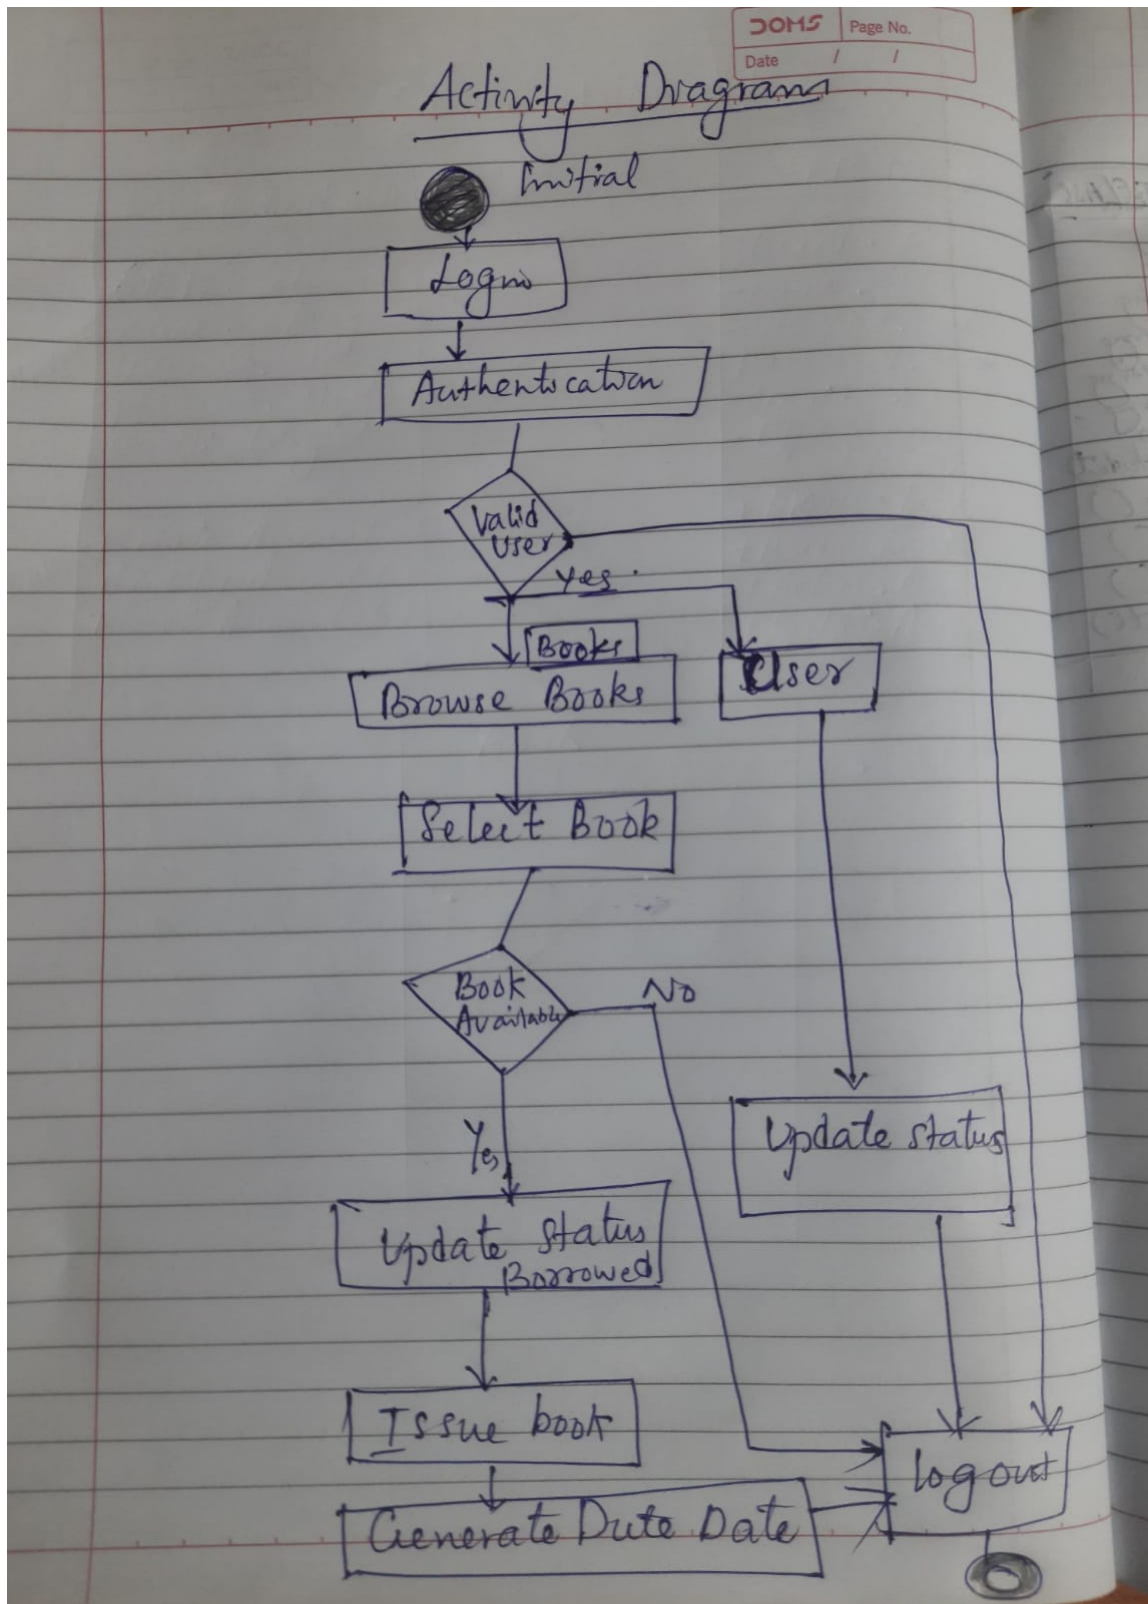 DOMS Page No.
Date / /
Activity Diagram
Initial
Login
Authentication
Valid
User
Yes.
Books
Browse Books
User
Select Book
Book
Available
No
Yes
Update status
Update status
Borrowed
Issue book
logout
Generate Dute Date